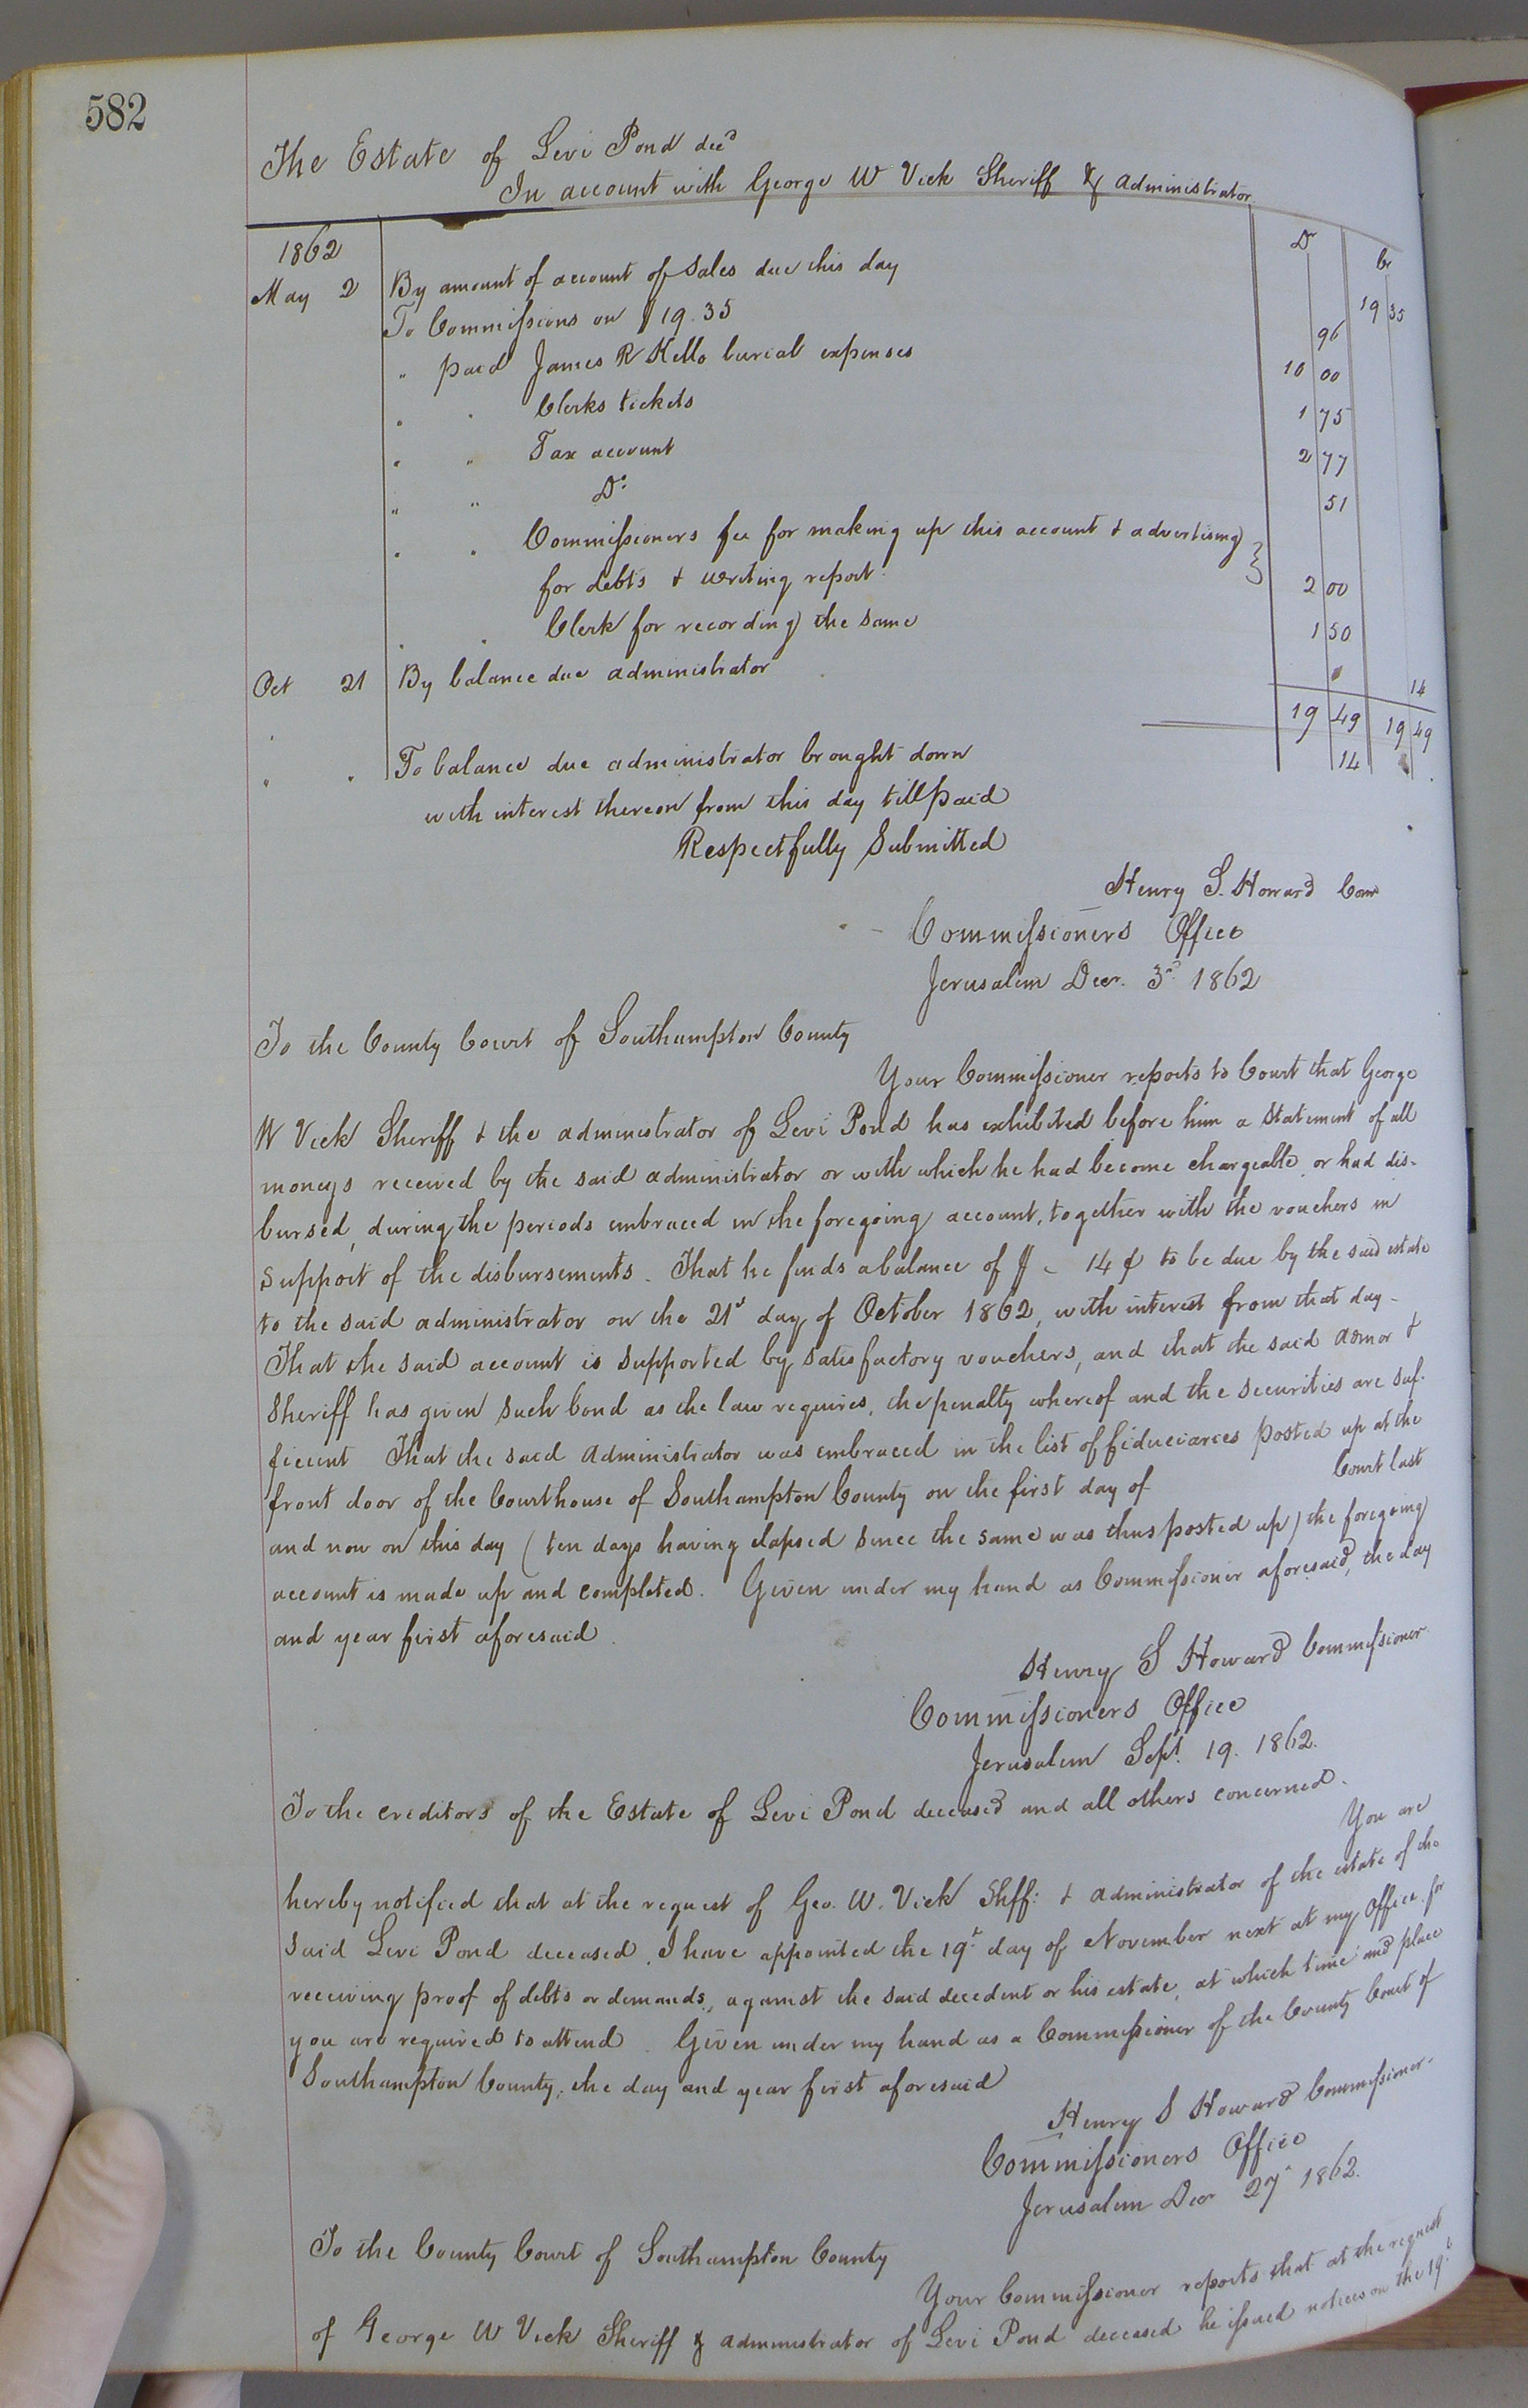 582
The Estate of Levi Pond decd
In account with George W Vick Sheriff & administrator
1862 Dr Cr
May 2 By amount of account of Sales due this day 19 35
To Commissions on $19.35 96
" paid James R Kello burial expenses 10 00
" " Clerks tickets 1 75
" " Tax account 2 77
" " Do 51
" " Commissioners fee for making up this account & advertising
for debts & writing report 2 00
" " Clerk for recording the same 1 50
Oct 21 By balance due administrator 14
19 49 19 49
" " To balance due administrator brought down 14
with interest thereon from this day till paid
Respectfully Submitted
Henry S. Howard Comr
Commissioners Office
Jerusalem Decr. 3rd 1862
To the County Court of Southampton County
Your Commissioner reports to Court that George
W Vick Sheriff & the administrator of Levi Pond has exhibited before him a Statement of all
moneys received by the said administrator or with which he had become chargeable or had dis-
bursed, during the periods embraced in the foregoing account, together with the vouchers in
support of the disbursements. That he finds a balance of $ - 14 ¢ to be due by the said estate
to the said administrator on the 21st day of October 1862, with interest from that day -
That the said account is supported by satisfactory vouchers, and that the said admor &
Sheriff has given such bond as the law requires, the penalty whereof and the securities are suf-
ficient That the said Administrator was embraced in the list of fiduciaries posted up at the
front door of the Courthouse of Southampton County on the first day of Court last
and now on this day (ten days having elapsed since the same was thus posted up) the foregoing
account is made up and completed. Given under my hand as Commissioner aforesaid, the day
and year first aforesaid.
Henry S Howard Commissioner
Commissioners Office
Jerusalem Sept. 19. 1862.
To the creditors of the Estate of Levi Pond deceased and all others concerned.
You are
hereby notified that at the request of Geo. W. Vick Shff: & administrator of the estate of the
said Levi Pond deceased, I have appointed the 19t day of November next at my Office for
receiving proof of debts or demands, against the said decedent or his estate, at which time and place
you are required to attend. Given under my hand as a Commissioner of the County Court of
Southampton County, the day and year first aforesaid
Henry S Howard Commissioner.
Commissioners Office
Jerusalem Decr 27" 1862.
To the County Court of Southampton County
Your Commissioner reports that at the request
of George W Vick Sheriff & administrator of Levi Pond deceased he issued notices on the 19t